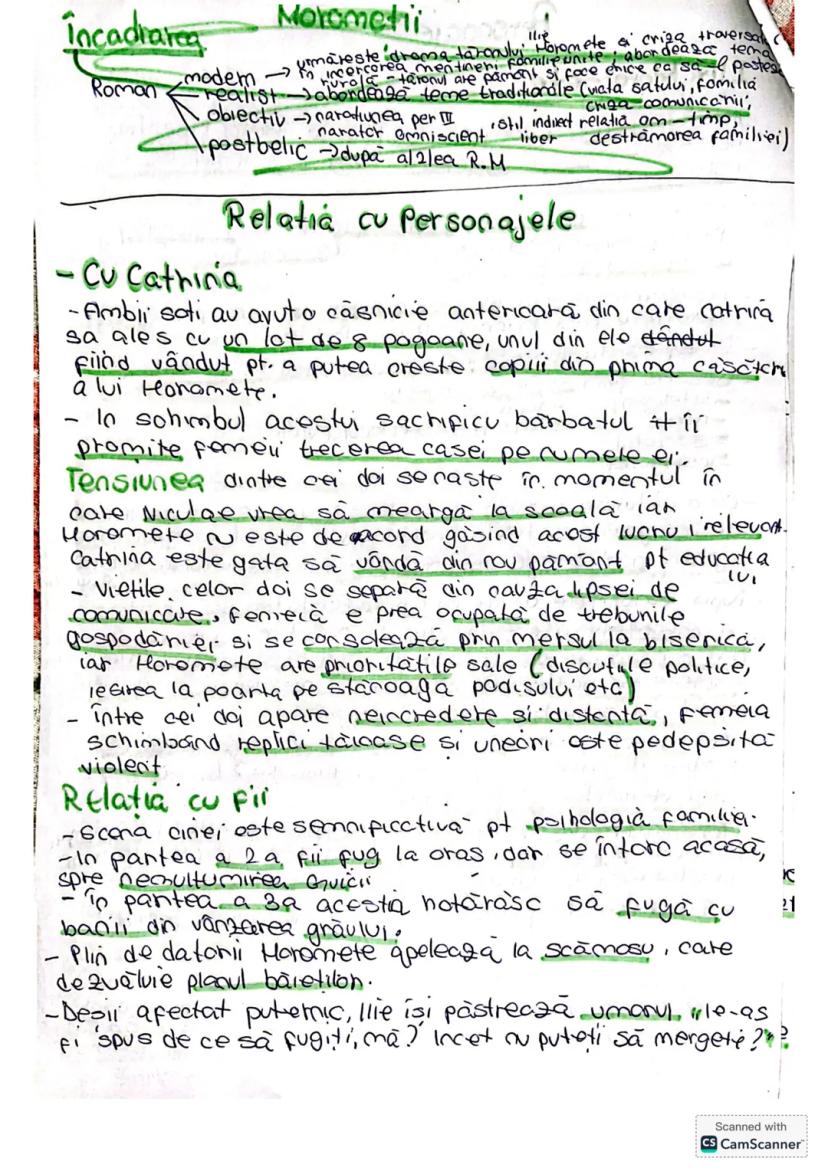 Moromeții
Încadrarea
Roman
modern → urmărește drama țăranului Ilie Moromete și criza traversată
în incercarea mentineri familiei unite; abordează tema
rurală - țăranul are pământ și face orice ca să-l păstreze
realist → abordează teme tradiționale (viata satului, familia
criza comunicării,
obiectiv → narațiunea per III, stil indirect relatia om-timp,
narator omniscient liber destrămarea familiei)
postbelic → după al 2lea R.M
Relatia cu Personajele
- Cu Catrina
- Ambii soti au avut o căsnicie anterioară din care catrina
sa ales cu un lot de 8 pogoane, unul din ele dândut
fiind vândut pt. a putea creste copiii din prima căsători
a lui Moromete.
- In schimbul acestui sacrificiu bărbatul îi
promite femeii trecerea casei pe numele ei.
Tensiunea dintre cei doi se naste în momentul în
care Niculae vrea să meargă la scoală iar
Moromete nu este de acord găsind acest lucru irelevant.
Catrina este gata să vândă din nou pământ pt educatia
lui
- Vietile celor doi se separă din cauza lipsei de
comunicare, femeia e prea ocupată de treburile
gospodăriei si se consolează prin mersul la biserică,
iar Moromete are prioritățile sale (discutiile politice,
iesirea la poarta pe stănoaga podisului etc)
- între cei doi apare neincredere si distantă, femeia
schimbând replici tăioase si uneori este pedepsită
violent
Relația cu fii
- Scena cinei este semnificativă pt psihologia familiei.
- In partea a 2a fii fug la oras, dar se întorc acasă,
spre nemultumirea Guicii
- în partea a 3a acestia hotărăsc să fugă cu
banii din vânzarea grâului.
- Plin de datorii Moromete apelează la scămosu, care
dezvăluie planul băieților.
- Desii afectat puternic, Ilie își păstrează umorul "le-as
fi spus de ce să fugiți, mă? Incet nu puteți să mergeți?"
Scanned with
CS CamScanner